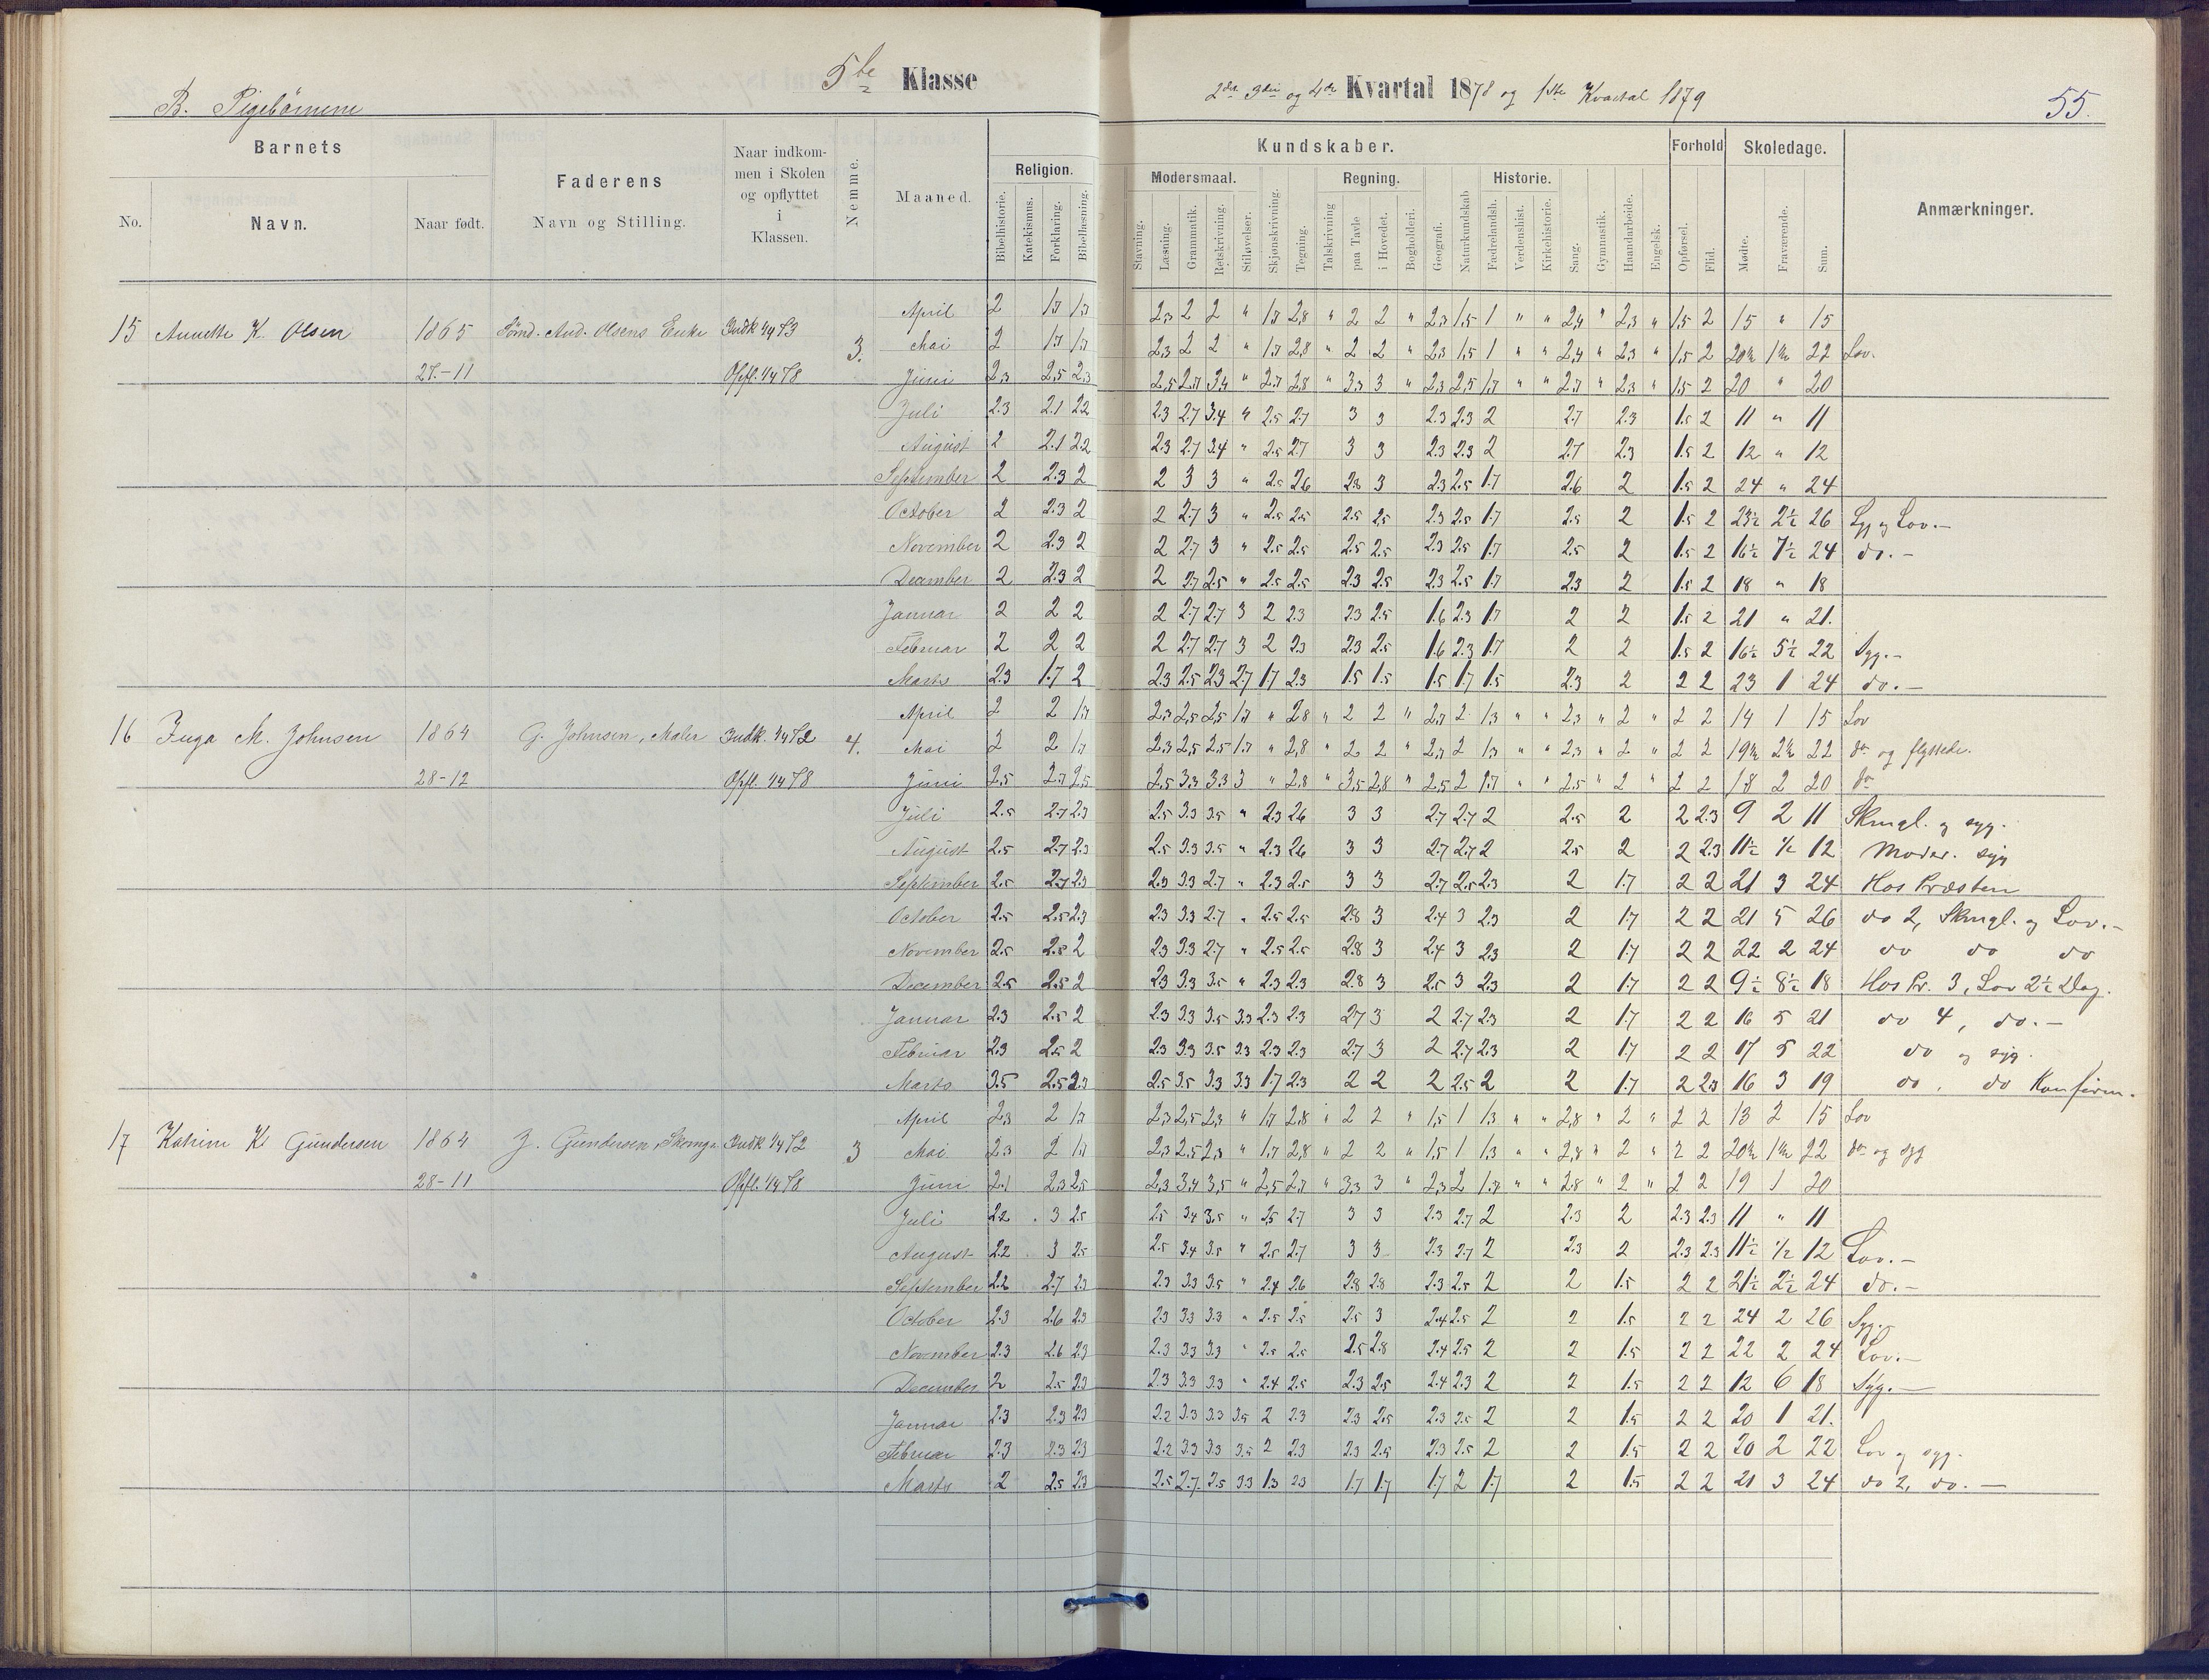 5te Klasse
2det 3die og 4de Kvartal 1878 og 1ste Kvartal 1879
55.
B. Pigebörnene
Barnets
No.
Navn.
Naar født.
Faderens
Navn og Stilling.
Naar indkom-
men i Skolen
og opflyttet
i
Klassen.
Nemme.
Maaned.
Kundskaber.
Religion.
Bibelhistorie.
Katekismus.
Forklaring.
Bibellæsning.
Modersmaal.
Stavning.
Læsning.
Grammatik.
Retskrivning.
Stiløvelser.
Skjønskrivning.
Tegning.
Regning.
Talskrivning
paa Tavle
i Hovedet.
Bogholderi.
Geografi.
Naturkundskab
Historie.
Fædrelandsh.
Verdenshist.
Kirkehistorie.
Sang.
Gymnastik.
Haandarbeide.
Engelsk.
Forhold
Opførsel.
Flid.
Skoledage.
Mødte.
Fraværende.
Sum.
Anmærkninger.
15 Annette K. Olsen 1865 And. Olsens Enke Indk 1/4 73 3.
27.-11 Opfl. 1/4 78
April 2 1,7 1,7 2,3 2 2 " 1,7 2,8 " 2 2 " 2,3 1,5 1 " " 2,4 " 2,3 " 1,5 2 15 " 15
Mai 2 1,7 1,7 2,3 2 2 " 1,7 2,8 " 2 2 " 2,3 1,5 1 " " 2,4 " 2,3 " 1,5 2 20½ 1½ 22 Lov.
Juni 2,3 2,5 2,3 2,5 2,7 3,4 " 2,7 2,8 " 3,3 3 " 2,3 2,5 1,7 " " 2,7 " 2,3 " 1,5 2 20 " 20
Juli 2.3 2.1 2.2 2.3 2.7 3.4 " 2.5 2.7 3 3 2.3 2.3 2 2.7 2.3 1.5 2 11 " 11
August 2 2.1 2.2 2.3 2.7 3.4 " 2.5 2.7 3 3 2.3 2.3 2 2.7 2.3 1.5 2 12 " 12
September 2 2.3 2 2 3 3 " 2.5 2.6 2.8 3 2.3 2.5 1.7 2.6 2 1.5 2 24 " 24
October 2 2.3 2 2 2.7 3 " 2.5 2.5 2.5 2.5 2.3 2.5 1.7 2.5 2 1.5 2 23½ 2½ 26 Syg og Lov.-
November 2 2.3 2 2 2.7 3 " 2.5 2.5 2.5 2.5 2.3 2.5 1.7 2.5 2 1.5 2 16½ 7½ 24 do.-
December 2 2.3 2 2 2.7 2.5 " 2.5 2.5 2.3 2.5 2.3 2.5 1.7 2.3 2 1.5 2 18 " 18
Januar 2 2 2 2 2.7 2.7 3 2 2.3 2.3 2.5 1.6 2.3 1.7 2 2 1.5 2 21 " 21.
Februar 2 2 2 2 2.7 2.7 3 2 2.3 2.3 2.5 1.6 2.3 1.7 2 2 1.5 2 16½ 5½ 22 Syg.-
Marts 2.3 1.7 2 2.3 2.5 2.3 2.7 1.7 2.3 1.5 1.5 1.5 1.7 1.5 2.3 2 2 2 23 1 24 do.-
16 Inga M. Johnsen 1864 G. Johnsen, Maler Indk. 1/4 72 4.
28-12 Opfl. 1/4 78
April 2 2 1,7 2,3 2,5 2,5 1,7 " 2,8 " 2 2 " 2,7 2 1,3 " " 2,3 " 2 " 2 2 14 1 15 Lov
Mai 2 2 1,7 2,3 2,5 2,5 1,7 " 2,8 " 2 2 " 2,7 2 1,3 " " 2,3 " 2 " 2 2 19½ 2½ 22 do og flyttede.
Juni 2,5 2,7 2,5 2,5 3,3 3,3 3 " 2,8 " 3,5 2,8 " 2,5 2 1,7 " " 2,5 " 2 " 2 2 18 2 20 do
Juli 2.5 2.7 2.3 2.5 3.3 3.5 " 2.3 2.6 3 3 2.7 2.7 2 2.5 2 2 2.3 9 2 11 Skmgl. og syg.
August 2.5 2.7 2.3 2.5 3.3 3.5 " 2.3 2.6 3 3 2.7 2.7 2 2.5 2 2 2.3 11½ ½ 12 Moder. syg
September 2.5 2.7 2.3 2.3 3.3 2.7 " 2.3 2.5 3 3 2.7 2.5 2.3 2 1.7 2 2 21 3 24 Hos Præsten
October 2.5 2.5 2.3 2.3 3.3 2.7 " 2.5 2.5 2.8 3 2.4 3 2.3 2 1.7 2 2 21 5 26 do 2, Skmgl. og Lov.-
November 2.5 2.5 2 2.3 3.3 2.7 " 2.5 2.5 2.8 3 2.4 3 2.3 2 1.7 2 2 22 2 24 do do do
December 2.5 2.5 2 2.3 3.3 3.5 " 2.3 2.3 2.8 3 2.5 3 2.3 2 1.7 2 2 9½ 8½ 18 Hos Pr. 3, Lov 2½ Dag.
Januar 2.3 2.5 2 2.3 3.3 3.5 3.3 2.3 2.3 2.7 3 2 2.7 2.3 2 1.7 2 2 16 5 21 do 4, do.-
Februar 2.3 2.5 2 2.3 3.3 3.5 3.3 2.3 2.3 2.7 3 2 2.7 2.3 2 1.7 2 2 17 5 22 do og syg.
Marts 3.5 2.5 2.3 2.5 3.5 3.3 3.3 1.7 2.3 2 2 2 2.5 2 2 1.7 2 2.3 16 3 19 do, do Konfirm.
17 Katrine K Gundersen 1864 J. Gundersen, Skomgr Indk 1/4 72 3
28-11 Opfl. 1/4 78
April 2,3 2 1,7 2,3 2,5 2,3 " 1,7 2,8 " 2 2 " 1,5 1 1,3 " " 2,8 " 2 " 2 2 13 2 15 Lov
Mai 2,3 2 1,7 2,3 2,5 2,3 " 1,7 2,8 " 2 2 " 1,5 1 1,3 " " 2,8 " 2 " 2 2 20½ 1½ 22 do og syg
Juni 2,1 2,3 2,5 2,3 3,4 3,5 " 2,5 2,7 " 3,3 3 " 2,3 2 1,7 " " 2,8 " 2 " 2 2 19 1 20
Juli 2.2 3 2.5 2.5 3.4 3.5 " 2.5 2.7 3 3 2.3 2.7 2 2.3 2 2.3 2.3 11 " 11
August 2.2 3 2.5 2.5 3.4 3.5 " 2.5 2.7 3 3 2.3 2.7 2 2.3 2 2.3 2.3 11½ ½ 12 Lov.-
September 2.2 2.7 2.3 2.3 3.3 3.5 " 2.4 2.6 2.8 2.8 2.3 2.5 2 2 1.5 2 2 21½ 2½ 24 do.-
October 2.3 2.6 2.3 2.3 3.3 3.3 " 2.5 2.5 2.5 3 2.4 2.5 2 2 1.5 2 2 24 2 26 Syg.-
November 2.3 2.6 2.3 2.3 3.3 3.3 " 2.5 2.5 2.5 2.8 2.4 2.5 2 2 1.5 2 2 22 2 24 Lov.-
December 2 2.5 2.3 2.3 3.3 3.3 " 2.4 2.5 2.3 2.5 2.4 2.3 2 2 1.5 2 2 12 6 18 Syg.-
Januar 2.3 2.3 2.3 2.2 3.3 3.3 3.5 2 2.3 2.3 2.5 2.3 2.5 2 2 1.5 2 2 20 1 21.
Februar 2.3 2.3 2.3 2.2 3.3 3.3 3.5 2 2.3 2.3 2.5 2.3 2.5 2 2 1.5 2 2 20 2 22 Lov og syg.
Marts 2 2.5 2.3 2.5 2.7 2.5 3.3 1.3 2.3 1.7 1.7 1.7 2 1.7 2 1.5 2 2 21 3 24 do 2, do.-